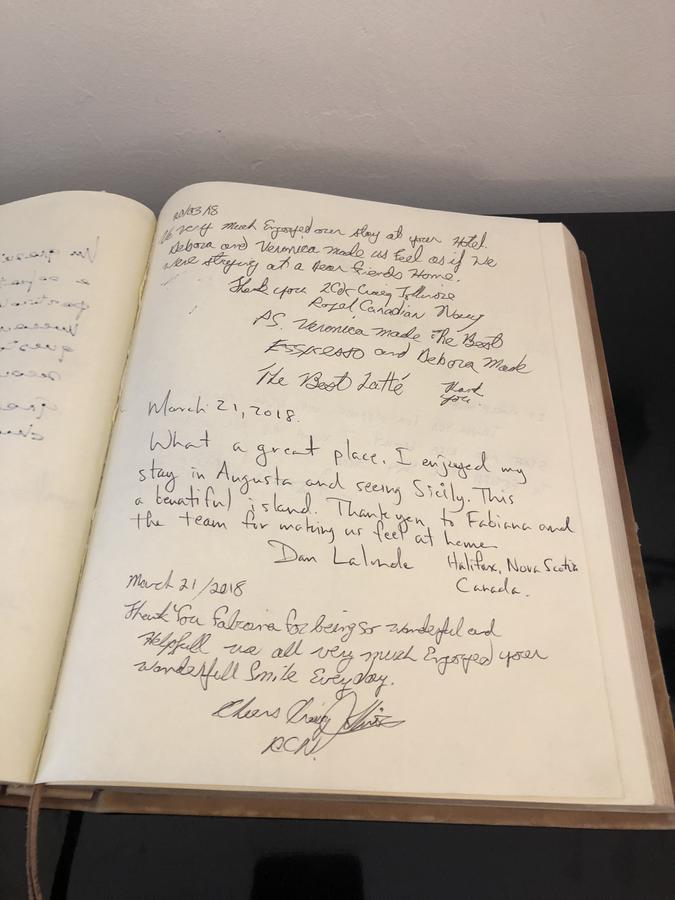 20/03/18
We very much Enjoyed our stay at your Hotel.
Debora and Veronica made us Feel as if we
were staying at a Dear Friends Home.
Thank you Craig
Royal Canadian Navy
PS. Veronica made The Best
Espresso and Debora Made
The Best Latté Thank
you.
March 21, 2018.
What a great place. I enjoyed my
stay in Augusta and seeing Sicily. This
a beautiful island. Thank you to Fabiana and
the team for making us feel at home
Dan Lalonde Halifax, Nova Scotia
Canada.
March 21/2018
Thank You Fabiana for being so wonderful and
Helpfull we all very much Enjoyed your
wonderfull Smile Everyday.
Cheers Craig
RCN.